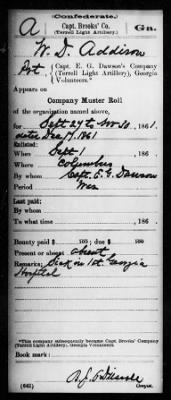 (Confederate.)
A | Capt. Brooks' Co. (Terrell Light Artillery). | Ga.
W. D. Addison
Pvt, { Capt. E. G. Dawson's Company (Terrell Light Artillery), Georgia Volunteers.*
Appears on
Company Muster Roll
of the organization named above,
for Sept 27 to Nov 30, 1861.
dated Dec 17, 1861
Enlisted:
When Sept 1, 186 .
Where Columbus
By whom Capt. E. G. Dawson
Period War
Last paid:
By whom
To what time , 186 .
Bounty paid $ 100; due $ 100
Present or absent absent
Remarks: Sick in 1st. Georgia
Hospital
*This company subsequently became Capt. Brooks' Company (Terrell Light Artillery), Georgia Volunteers.
Book mark:
(642)
Copyist.